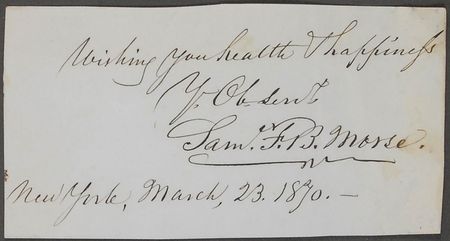 Wishing you health & happiness
Yr. Ob. servt
Saml. F. B. Morse.
New York, March, 23. 1870. —